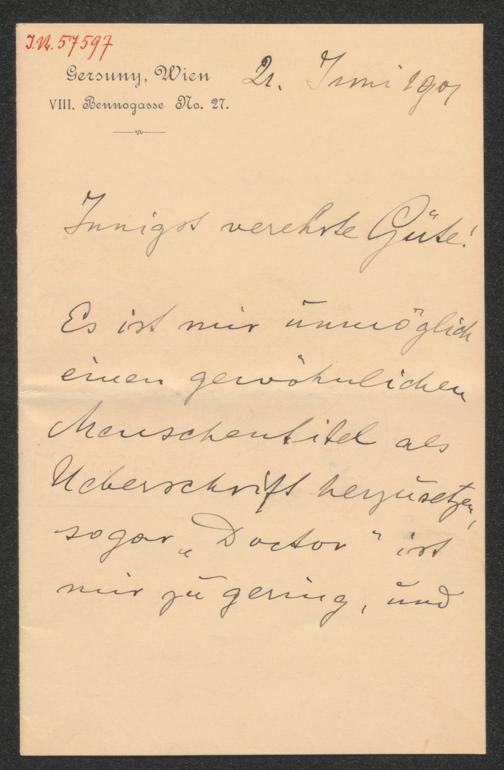 I.N. 57597
Gersuny, Wien
VIII. Bennogasse No. 27.
21. Juni 1901
Innigst verehrte Güte!
Es ist mir unmöglich
einen gewöhnlichen
Menschentitel als
Ueberschrift herzusetzen,
sogar „Doctor" ist
mir zu gering, und